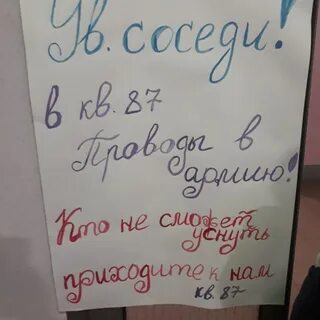 Ув. соседи!
в кв. 87
Проводы в
армию!
Кто не сможет
уснуть
приходите к нам
кв. 87